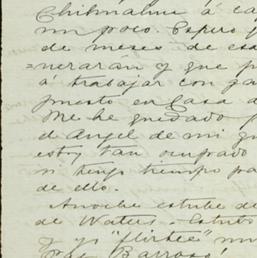 Chihuahua á ca
un poco. Espero q
de meses de esa
=neraran y que p
á trabajar con ga
puesto en Casa d
Me he quedado p
d Angel de mi g
estoy tan ocupado
ni tengo tiempo pa
de ello.
Anoche estube de
de Waters - Estubo
y yo "flirteé" mu
Barroso